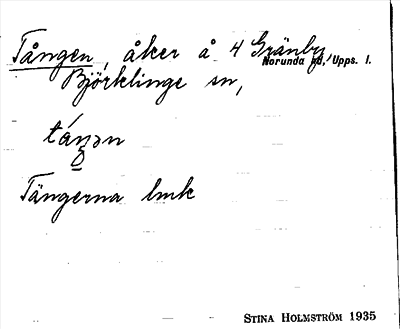 Tången, åker å 4 Gränby,
Norunda hd, Upps. l.
Björklinge sn,
táŋən
Tängerna lmk
STINA HOLMSTRÖM 1935